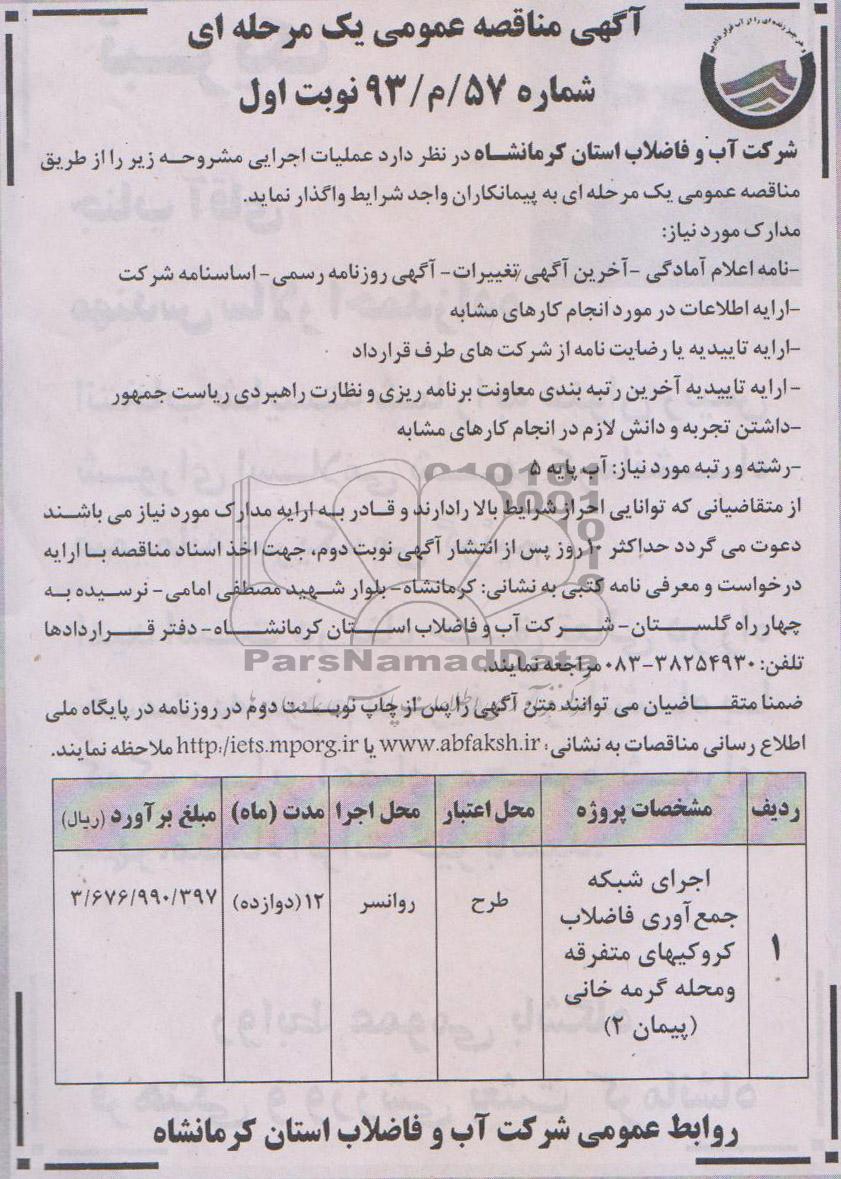 آگهی مناقصه عمومی یک مرحله ای
شماره ۵۷/م/۹۳ نوبت اول
شرکت آب و فاضلاب استان کرمانشاه در نظر دارد عملیات اجرایی مشروحه زیر را از طریق
مناقصه عمومی یک مرحله ای به پیمانکاران واجد شرایط واگذار نماید.
مدارک مورد نیاز:
-نامه اعلام آمادگی -آخرین آگهی تغییرات- آگهی روزنامه رسمی- اساسنامه شرکت
-ارایه اطلاعات در مورد انجام کارهای مشابه
-ارایه تاییدیه یا رضایت نامه از شرکت های طرف قرارداد
- ارایه تاییدیه آخرین رتبه بندی معاونت برنامه ریزی و نظارت راهبردی ریاست جمهور
-داشتن تجربه و دانش لازم در انجام کارهای مشابه
-رشته و رتبه مورد نیاز: آب پایه ۵
از متقاضیانی که توانایی احراز شرایط بالا رادارند و قادر به ارایه مدارک مورد نیاز می باشند
دعوت می گردد حداکثر ۱۰ روز پس از انتشار آگهی نوبت دوم، جهت اخذ اسناد مناقصه با ارایه
درخواست و معرفی نامه کتبی به نشانی: کرمانشاه- بلوار شهید مصطفی امامی- نرسیده به
چهار راه گلستان- شرکت آب و فاضلاب استان کرمانشاه- دفتر قراردادها
تلفن: ۳۸۲۵۴۹۳۰-۰۸۳ مراجعه نمایند.
ParsNamadData
ضمنا متقاضیان می توانند متن آگهی را پس از چاپ نوبت دوم در روزنامه در پایگاه ملی
اطلاع رسانی مناقصات به نشانی: www.abfaksh.ir یا http:/iets.mporg.ir ملاحظه نمایند.
ردیف مشخصات پروژه محل اعتبار محل اجرا مدت (ماه) مبلغ برآورد (ریال)
۱ اجرای شبکه جمع آوری فاضلاب کروکیهای متفرقه ومحله گرمه خانی (پیمان ۲) طرح روانسر ۱۲(دوازده) ۳/۶۷۶/۹۹۰/۳۹۷
روابط عمومی شرکت آب و فاضلاب استان کرمانشاه